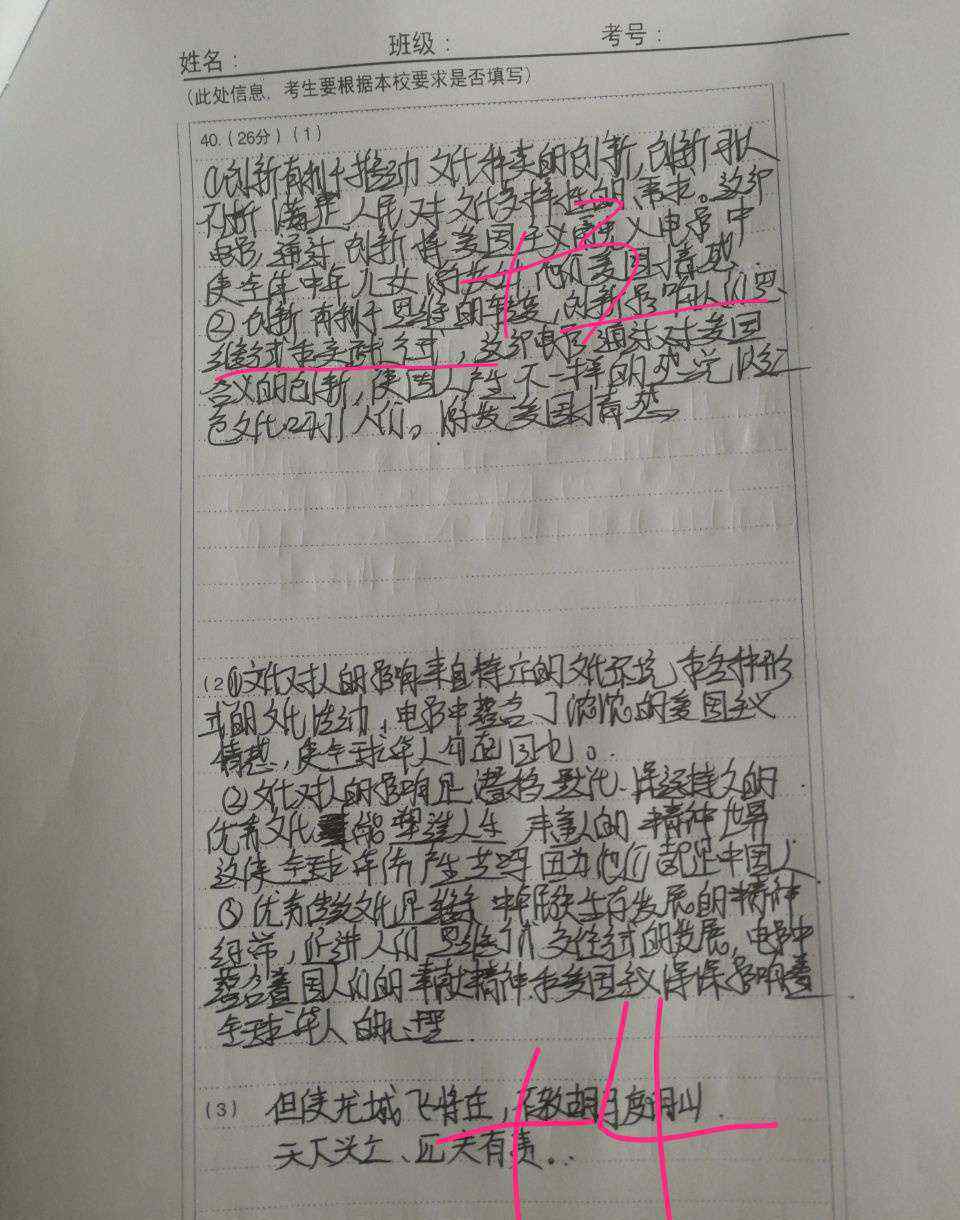 姓名：　班级：　考号：
（此处信息，考生要根据本校要求是否填写）
40.（26分）（1）
①创新有利于推动文化种类的创新，创新可以
不断满足人民对文化多样性的需求。这部
电影通过创新将爱国主义精神 电影中
使全体中年儿女 发 他们爱国情感.
②创新有利于思维的转变，创新影响人们思
维方式和实践方式，这部电影通过对爱国
含义的创新，使国人产生不一样的感觉 红
色文化 人们。 发爱国情感
（2 ①文化对人的影响来自特定的文化环境，和各种形
式的文化活动，电影中蕴含了浓浓的爱国主义
情感，使全球华人 。
②文化对人的影响是潜移默化、深远持久的
优秀文化能塑造人生 丰富人的精神世界
这使全球华侨产生共鸣因为他们都是中国人
③优秀传 文化是维系 民族生存发展的精神
纽带，促进人们思维 交往方式的发展，电影中
蕴含着国人们的奉献精神和爱国主义深深影响着
全球华人的
（3） 但使龙城飞将在，不教胡月度阴山.
天下兴亡、匹夫有责..
+3
+4